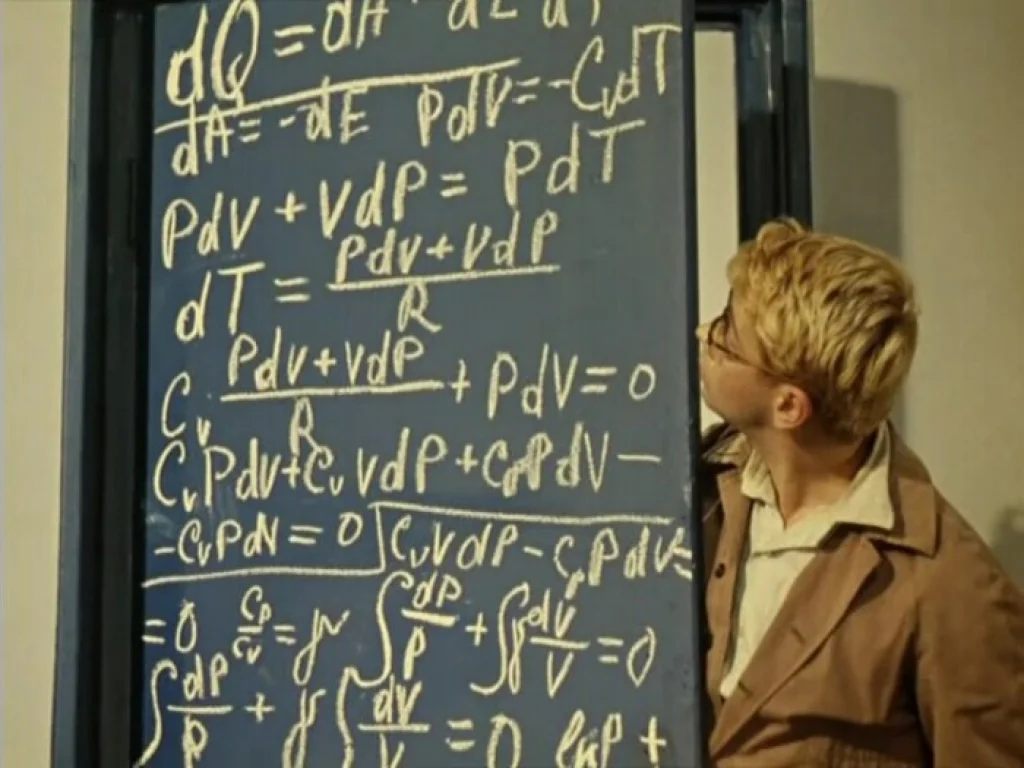 dQ = dA
dA = -dE PdV = -CvdT
PdV + VdP = PdT
dT = PdV + VdP / R
Cv PdV + VdP / R + PdV = 0
CvPdV + CvVdP + CpPdV –
- CvPdV = 0 CvVdP - CpPdV =
= 0 Cp/Cv = γ ∫ dP/P + ∫γ dV/V = 0
∫ dP/P + γ ∫ dV/V = 0 lnP +